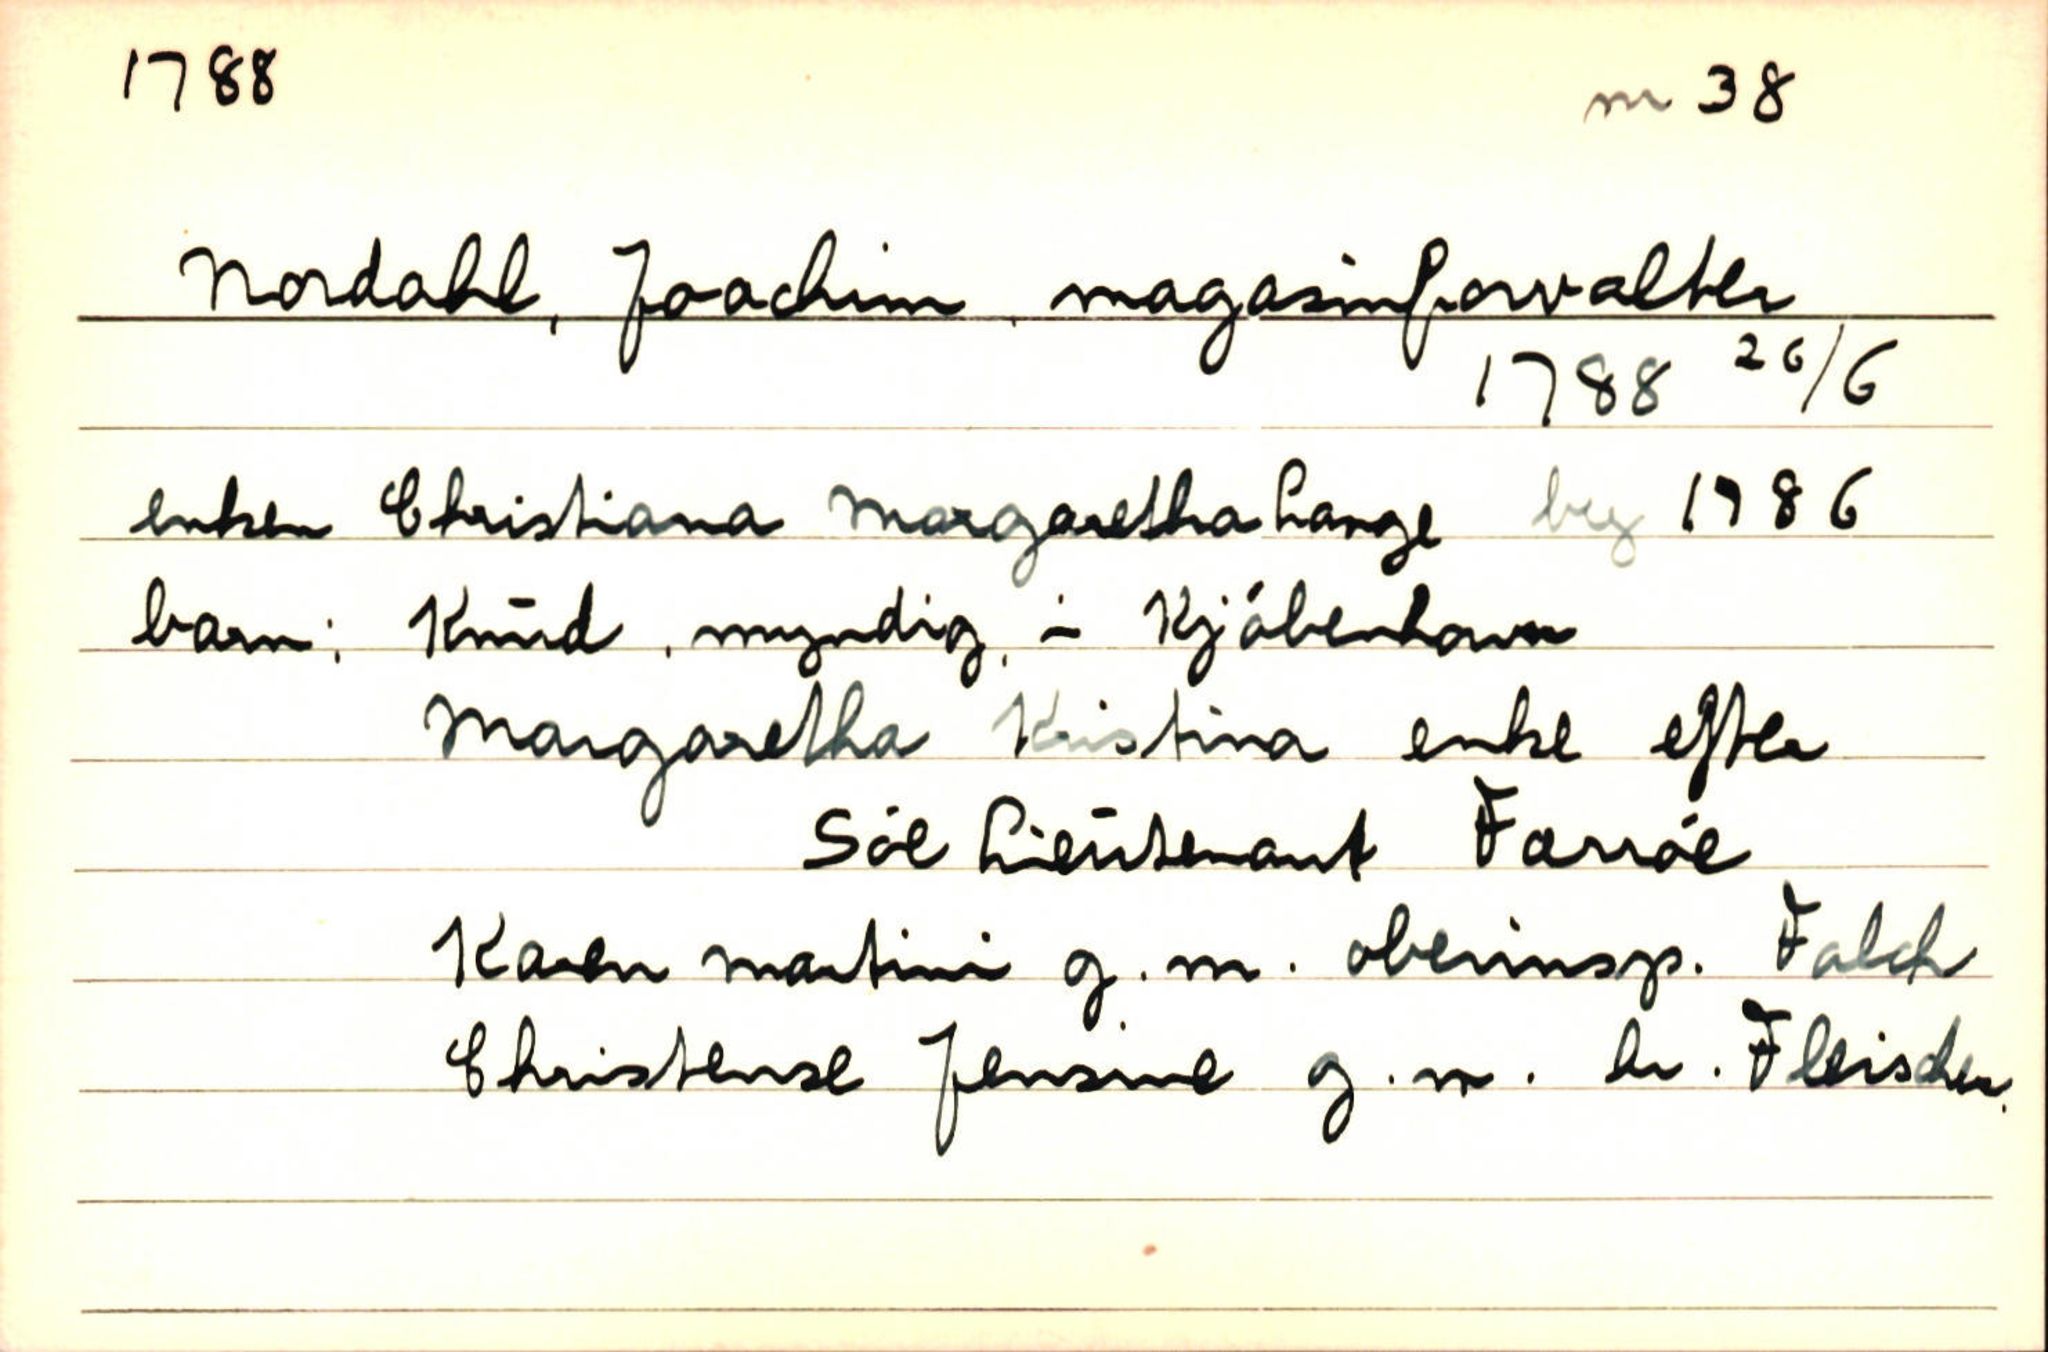 1788 nr 38
Nordahl, Joachim, magasinforvalter
1788 26/6
enken Christiana Margaretha Lange beg 1786
barn: Knud, myndig, i Kjöbenhavn
Margaretha Kristina enke efter
Söe Lieutenant Færröe
Karen Martini g.m. oberinsp. Falch
Christense Jensine g.m. hr. Fleischer.